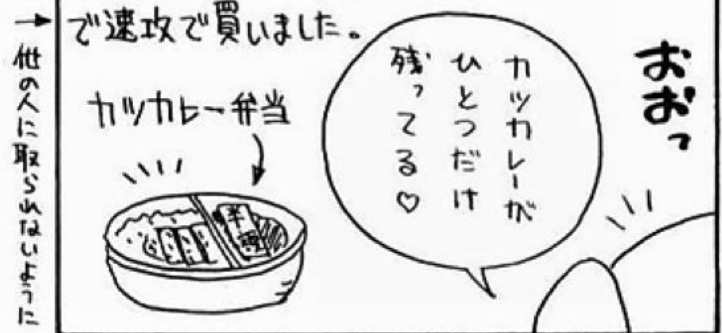 おおっ
カツカレーが
ひとつだけ
残ってる♡
で速攻で買いました。
カツカレー弁当
半額
→他の人に取られないように